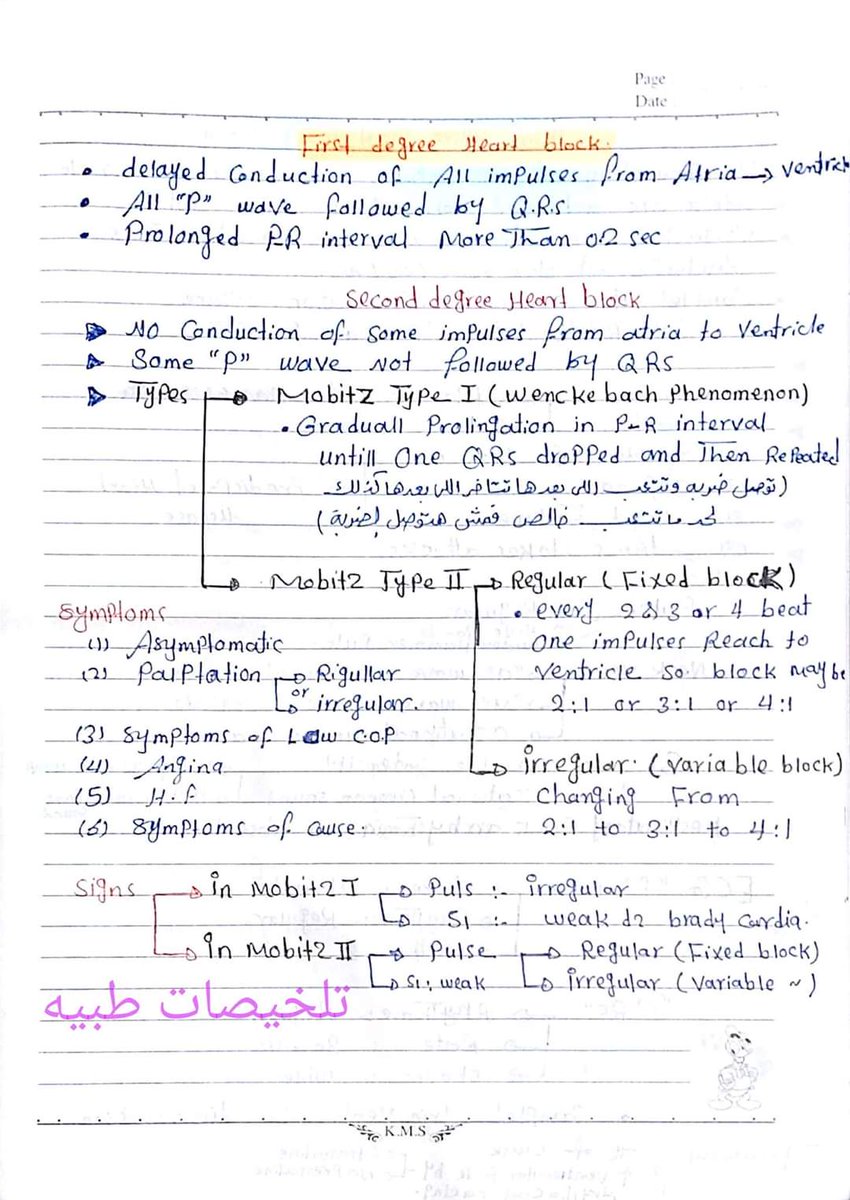 Page
Date
First degree Heart block.
• delayed Conduction of All impulses from Atria → Ventricle
• All "P" wave followed by Q.R.s
• Prolonged P.R interval More Than 0.2 sec
Second degree Heart block
NO Conduction of some impulses from atria to Ventricle
Some "P" wave Not followed by QRs
Types Mobitz Type I (Wenckebach Phenomenon)
• Graduall Prolingation in P-R interval
untill One QRs dropped and Then Repeated
(توصل ضربه وتتعب اللى بعدها تتاخر اللى بعدها كذلك
لحد ما تتعب خالص فمش هتوصل إضربة)
Mobitz Type II Regular (Fixed block)
Symptoms • every 2 & 3 or 4 beat
(1) Asymplomatic One impulses Reach to
(2) Palptation Rigullar Ventricle so block may be
or irregular. 2:1 or 3:1 or 4:1
(3) Symptoms of Low C.O.P
(4) Angina irregular. (Variable block)
(5) H.f Changing From
(6) Symptoms of Cause. 2:1 to 3:1 to 4:1
Signs in Mobitz I Puls :- irregular
S1 :- weak d2 brady Cardia.
in Mobitz II Pulse Regular (Fixed block)
S1: weak irregular (Variable ~)
تلخيصات طبيه
K.M.S